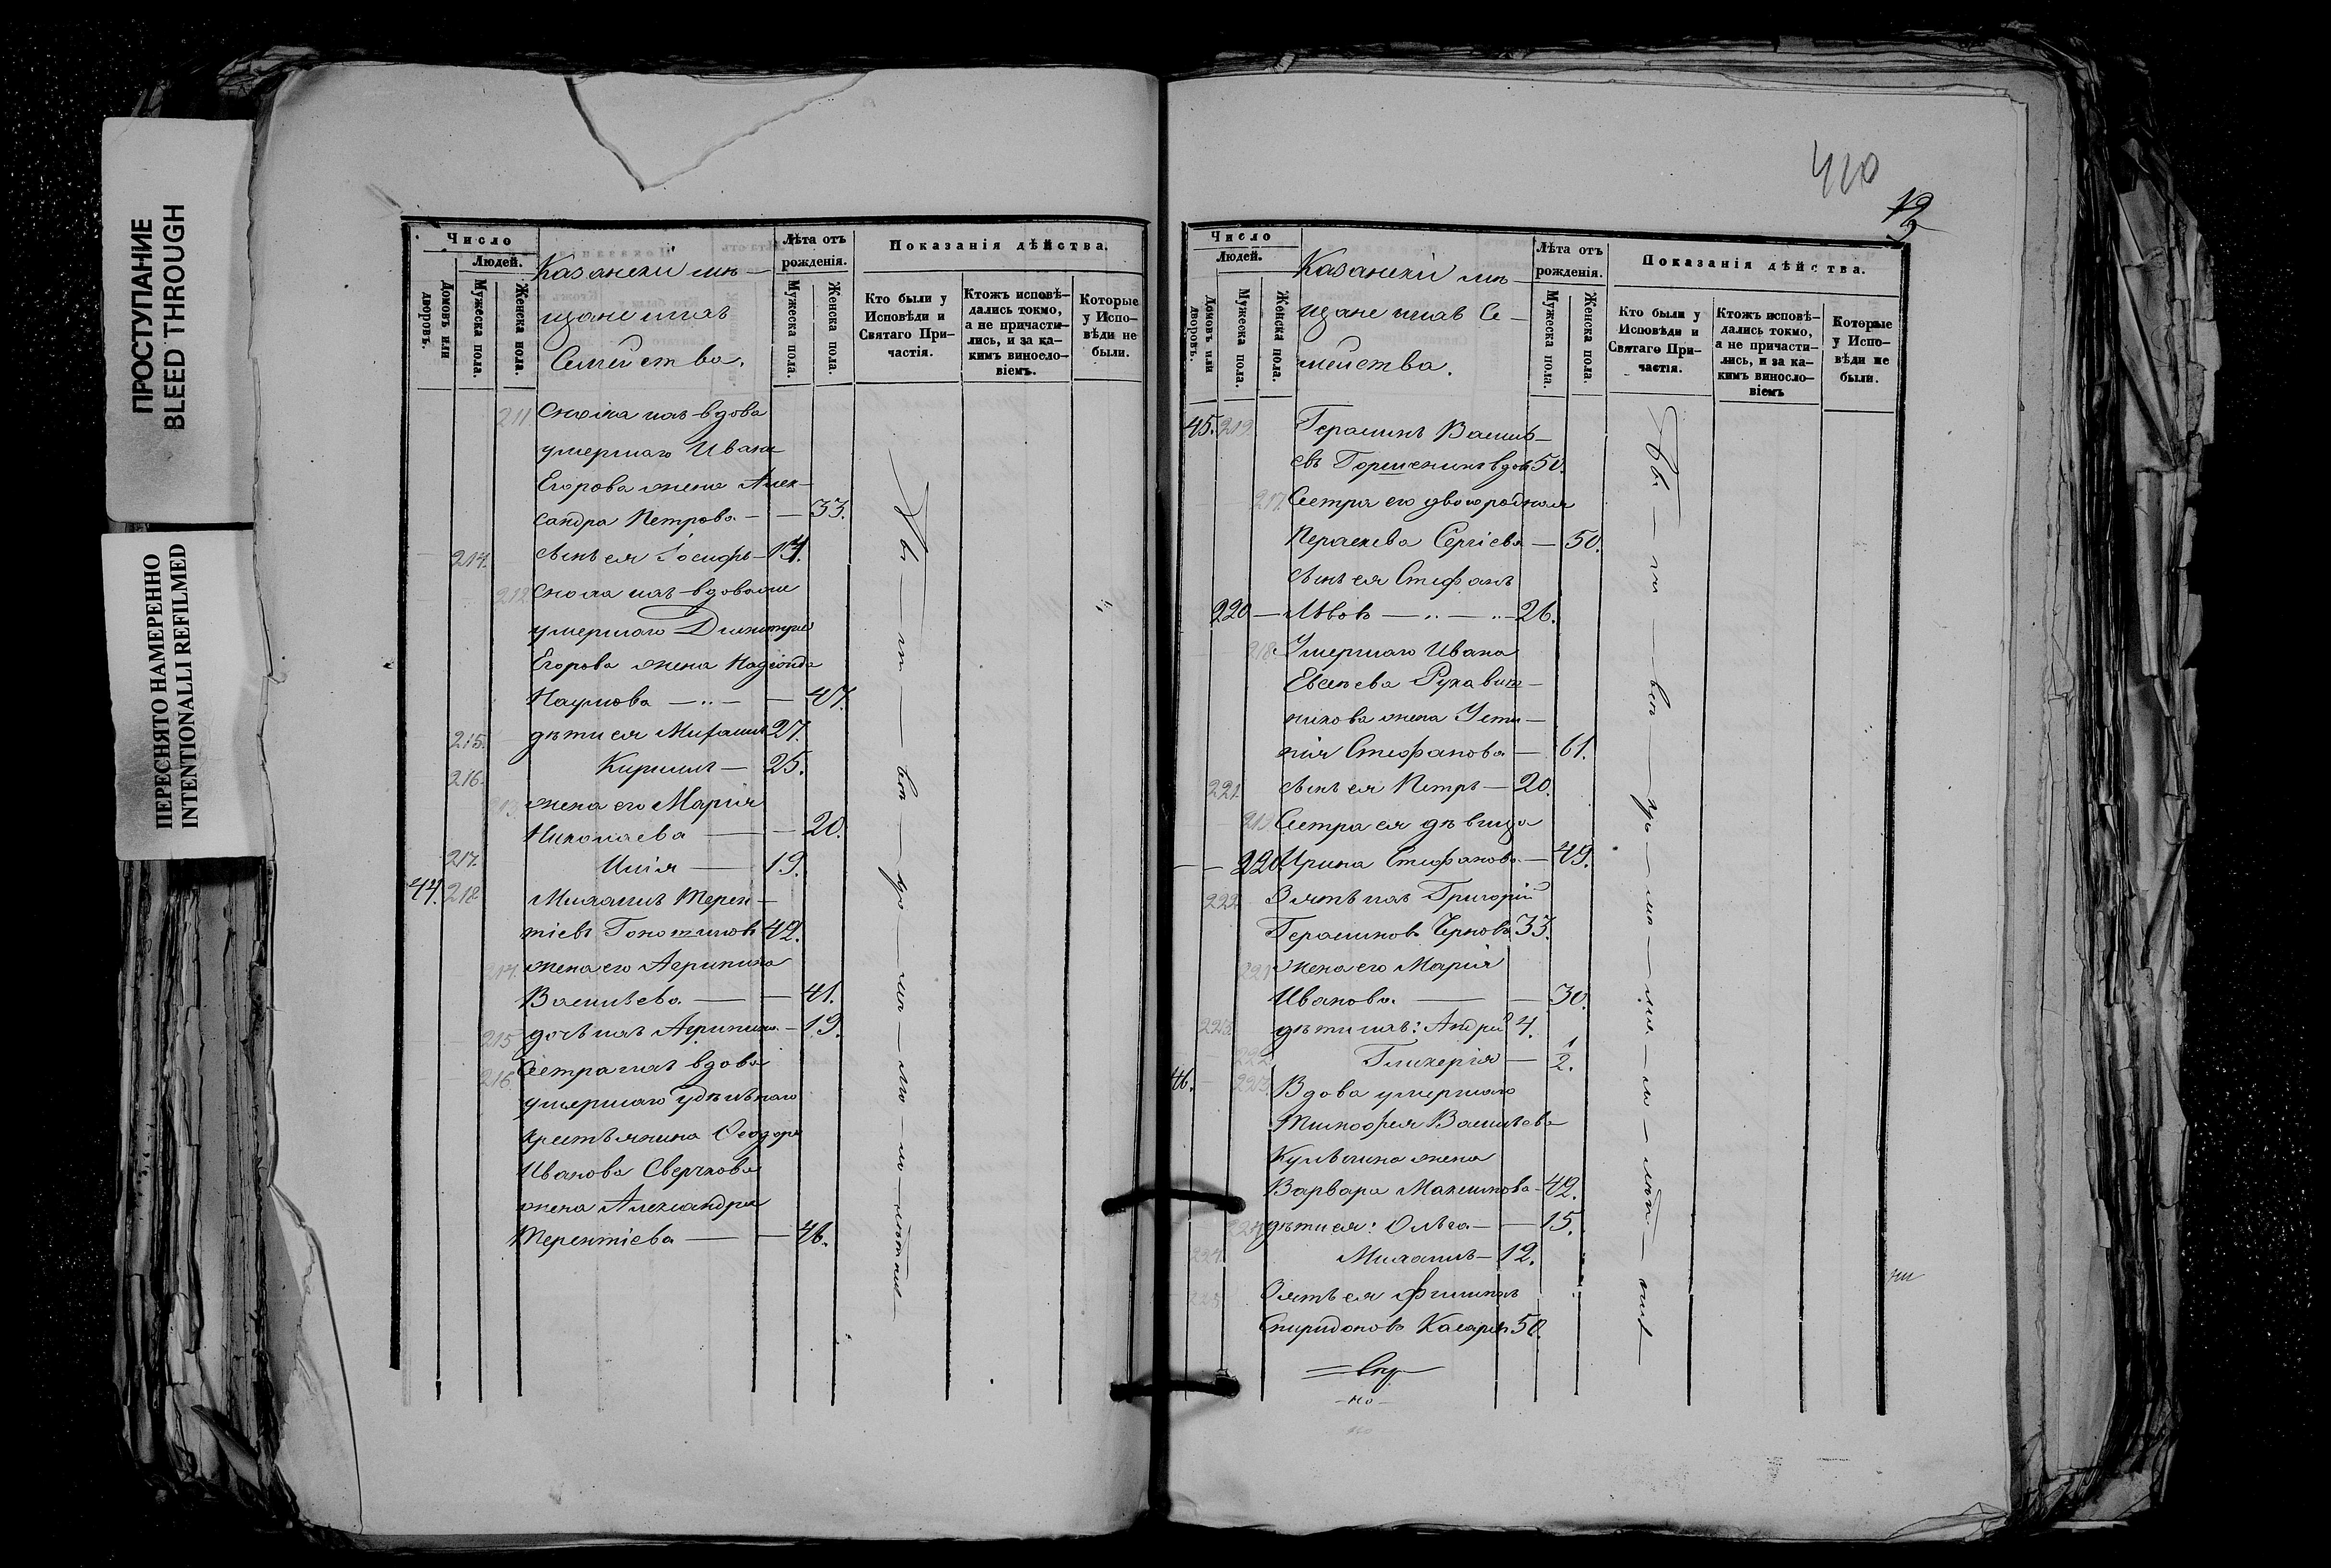 ПРОСТУПАНИЕ
BLEED THROUGH
ПЕРЕСНЯТО НАМЕРЕННО
INTENTIONALLI REFILMED
Число
Людей.
Домовъ или дворовъ.
Мужеска пола.
Женска пола.
Казански мѣ-
щане ихъ
Семейства.
Лѣта отъ рожденія.
Мужеска пола.
Женска пола.
Показанія дѣйства.
Кто были у Исповѣди и Святаго При-частія.
Ктожъ исповѣ-дались токмо, а не причасти-лись, и за ка-кимъ винословіемъ.
Которые у Испо-вѣди не были.
211. Сноха ихъ вдова
умершаго Ивана
Егорова жена Алек-
сандра Петрова — — 33.
214. сынъ ея Іосифъ — 14.
212. Сноха ихъ вдова же
умершаго Димитрія
Егорова жена
Наумова — — 47.
215. дѣти ея Михаилъ 27.
216. Кириллъ — 25.
213. жена его Марія
Николаева — — 20.
217. Илія — 19.
44. 218. Михаилъ Терен-
тіевъ 42.
214. жена его Агрипина
Васильева — — 41.
215 дочь ихъ Агрипина — 19.
216. Сестра ихъ вдова
умершаго удѣльнаго
крестьянина Ѳеодора
Иванова Сверчкова
жена Александра
Терентіева — — 46.
410
Число
Людей.
Домовъ или дворовъ.
Мужеска пола.
Женска пола.
Казанскіи мѣ-
щане ихъ Се-
мейства.
Лѣта отъ рожденія.
Мужеска пола.
Женска пола.
Показанія дѣйства.
Кто были у Исповѣди и Святаго При-частія.
Ктожъ исповѣ-дались токмо, а не причасти-лись, и за ка-кимъ винословіемъ
Которые у Испо-вѣди не были.
45. 219. Герасимъ Василь-
евъ вдов 50.
217. Сестра его двоюродная
Параскева Сергіева — 50.
сынъ ея Стефанъ
220 — Львовъ — 26.
218. Умершаго Ивана
Евсеева Рукавиш-
никова жена Усти-
нія Стефанова — 61.
221. сынъ ея Петръ — 20.
219. Сестра ея дѣвица
220. Ирина Стефанова — 49.
222. Зять ихъ Григорій
Герасимовъ Черновъ 33.
221 жена его Марія
Иванова — — 30.
223. дѣти ихъ: Андрей 4.
222 Гликерія — 1/2.
46. 223. Вдова умершаго
Тимофея Васильева
Кульпина жена
Варвара Максимова — 42.
224 дѣти ея: Ольга — — 15.
224. Михаилъ — 12.
225. Зять ея Филипъ
Спиридоновъ 50.